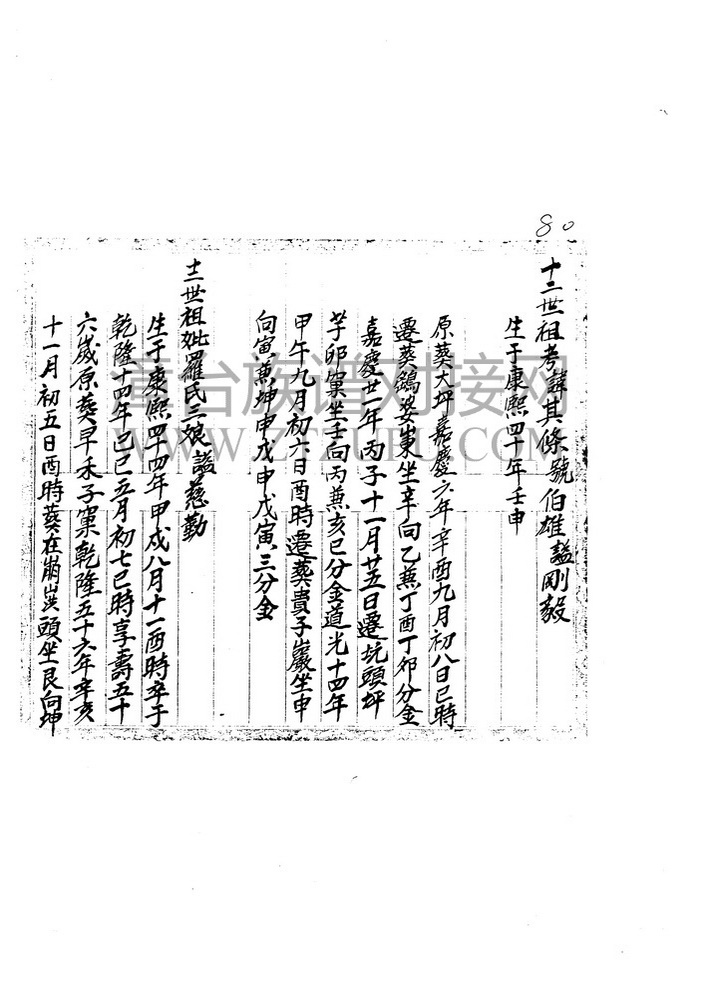 80
十二世祖考諱其條號伯雄謚剛毅
生于康熙四十年壬申
原葬大坪嘉慶六年辛酉九月初八日巳時
遷葬鷄婆崬坐辛向乙兼丁酉丁卯分金
嘉慶廿一年丙子十一月廿五日遷坑頭坪
芋卯窠坐壬向丙兼亥巳分金道光十四年
甲午九月初六日酉時遷葬貴子巖坐申
向寅兼坤申戊申戊寅三分金
十二世祖妣羅氏三娘謚慈勤
生于康熙四十四年甲戌八月十一酉時卒于
乾隆十四年己巳五月初七巳時享壽五十
六歲原葬早禾子窠乾隆五十六年辛亥
十一月初五日酉時葬在崩崗頭坐艮向坤
臺台族谱对接网
WWW.ZTZUPU.COM